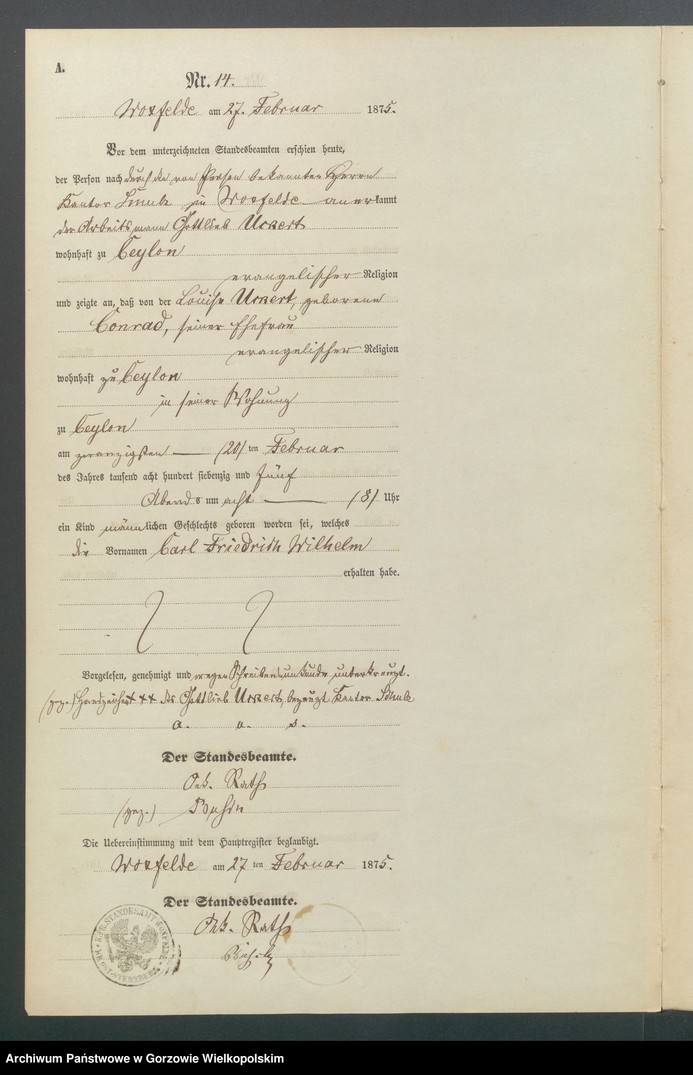 A.
Nr. 14.
Woxfelde am 27. Februar 1875.
Vor dem unterzeichneten Standesbeamten erschien heute,
der Person nach durch den von Person bekannten Herrn
Kantor Schulz in Woxfelde anerkannt
der Arbeitsmann Gottlieb Uckert
wohnhaft zu Ceylon
evangelischer Religion
und zeigte an, daß von der Louise Uckert, geborene
Conrad, seiner Ehefrau
evangelischer Religion
wohnhaft zu Ceylon
in seiner Wohnung
zu Ceylon
am zwanzigsten (20) ten Februar
des Jahres tausend acht hundert siebenzig und fünf
Abends um acht (8) Uhr
ein Kind männlichen Geschlechts geboren worden sei, welches
die Vornamen Carl Friedrich Wilhelm
erhalten habe.
Vorgelesen, genehmigt und wegen Schreibensunkunde unterkreuzt.
(gez.) Handzeichen +++ des Gottlieb Uckert, bezeugt Kantor Schulz
a. u. s.
Der Standesbeamte.
Oek. Rath
(gez.)
Die Uebereinstimmung mit dem Hauptregister beglaubigt.
Woxfelde am 27 ten Februar 1875.
Der Standesbeamte.
Oek. Rath
K. PR. STANDESAMT WOXFELDE
KR. OST-STERNBERG
Archiwum Państwowe w Gorzowie Wielkopolskim